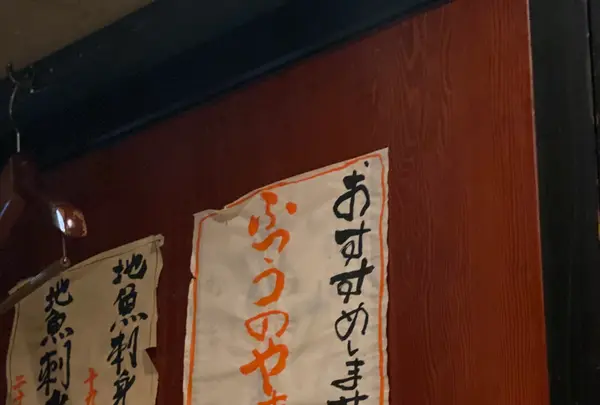 おすすめしませ
ふつうのや
地魚刺身
十
地魚刺
二十